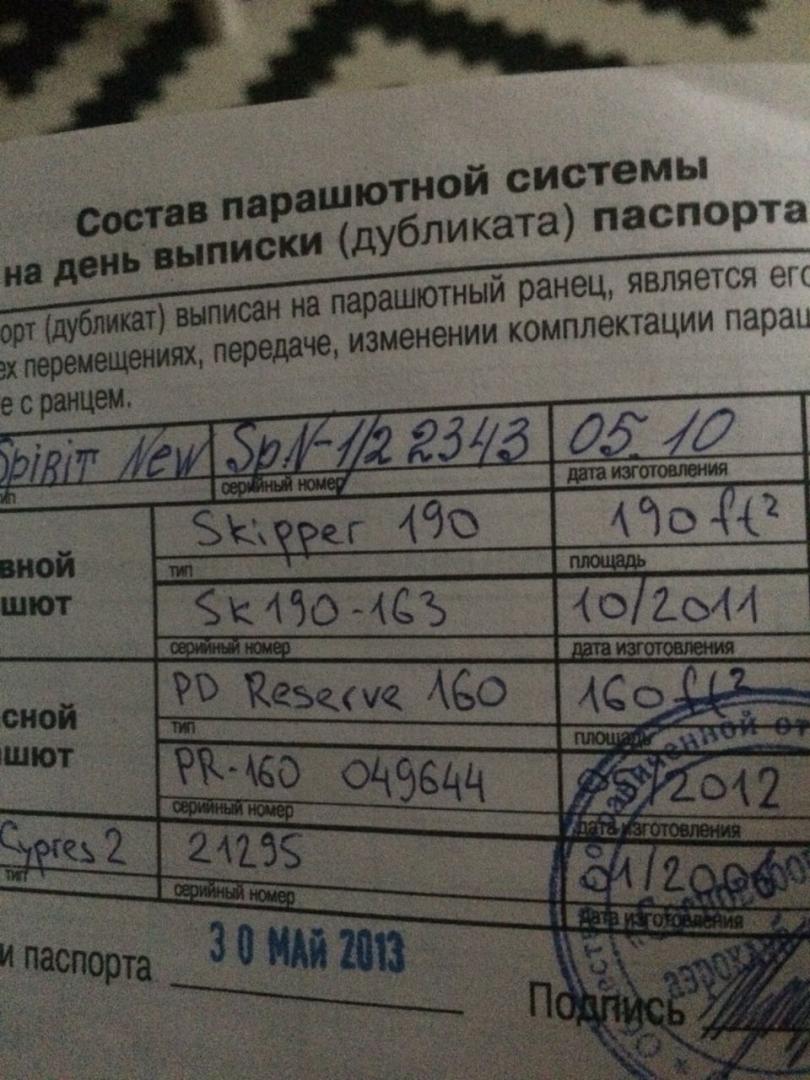 Состав парашютной системы
на день выписки (дубликата) паспорта
орт (дубликат) выписан на парашютный ранец, является его
ех перемещениях, передаче, изменении комплектации параш
е с ранцем.
Spirit New Sp.N-1/2 2343 05. 10
ип серийный номер дата изготовления
Skipper 190 190 ft²
вной тип площадь
шют Sk190-163 10/2011
серийный номер дата изготовления
PD Reserve 160 160 ft²
сной тип площадь
ашют PR-160 049644 /2012
серийный номер дата изготовления
Cypres 2 21295 01/2006
тип серийный номер дата изготовления
и паспорта 30 МАЙ 2013
Подпись